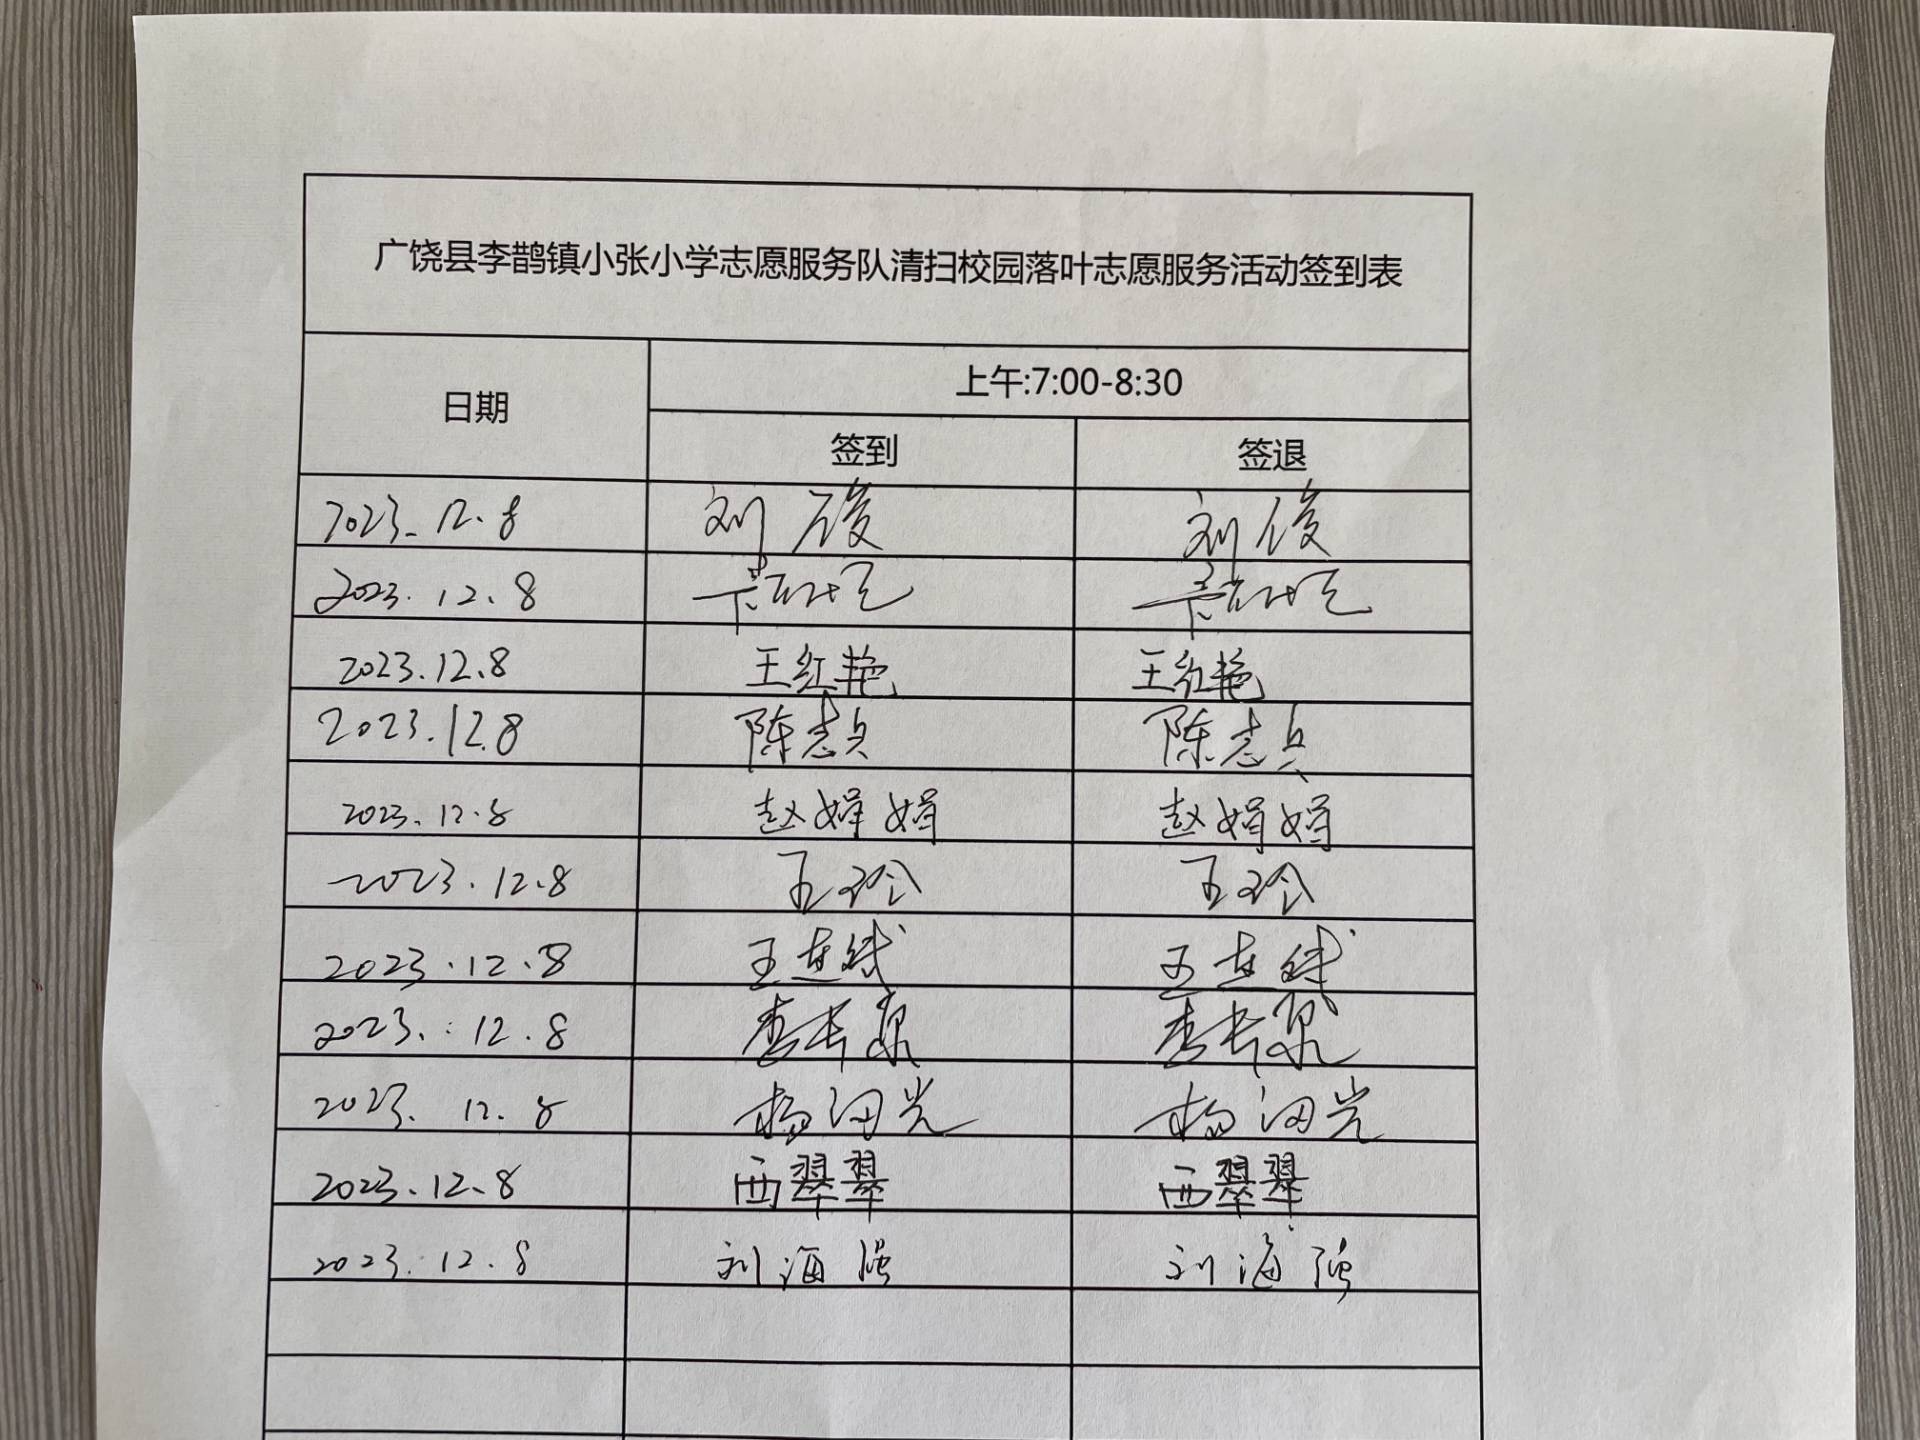 广饶县李鹊镇小张小学志愿服务队清扫校园落叶志愿服务活动签到表
日期
上午:7:00-8:30
签到 签退
2023.12.8 刘俊 刘俊
2023.12.8
2023.12.8 王红艳 王红艳
2023.12.8 陈志兵 陈志兵
2023.12.8 赵娟娟 赵娟娟
2023.12.8 王玲 王玲
2023.12.8 王连 王连
2023.12.8 李长泉 李长泉
2023.12.8 杨 光 杨 光
2023.12.8 西翠翠 西翠翠
2023.12.8 刘海强 刘海强